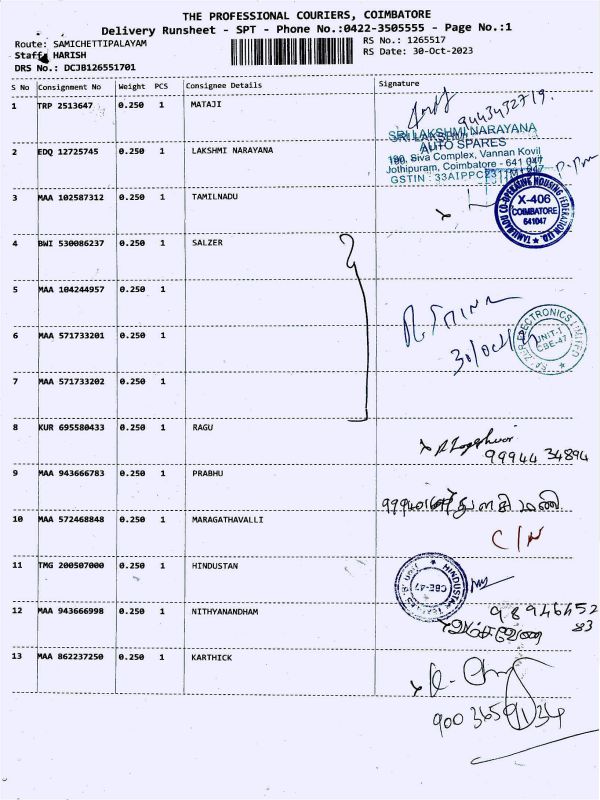 THE PROFESSIONAL COURIERS, COIMBATORE
Delivery Runsheet - SPT - Phone No.:0422-3505555 - Page No.:1
Route: SAMICHETTIPALAYAM
RS No.: 1265517
Staff: HARISH
RS Date: 30-Oct-2023
DRS No.: DCJB126551701
S No Consignment No Weight PCS Consignee Details Signature
1 TRP 2513647 0.250 1 MATAJI
9443432719.
2 EDQ 12725745 0.250 1 LAKSHMI NARAYANA
SRI LAKSHMI NARAYANA
AUTO SPARES
190, Siva Complex, Vannan Kovil
Jothipuram, Coimbatore - 641 047
GSTIN : 33AIPPC
3 MAA 102587312 0.250 1 TAMILNADU
TAMILNADU CO-OPERATIVE HOUSING FEDERATION LTD.
X-406
COIMBATORE
641047
4 BWI 530086237 0.250 1 SALZER
5 MAA 104244957 0.250 1
6 MAA 571733201 0.250 1
30/oct/23
SALZER ELECTRONICS LIMITED
UNIT-1
CBE-47
7 MAA 571733202 0.250 1
8 KUR 695580433 0.250 1 RAGU
99944 34894
9 MAA 943666783 0.250 1 PRABHU
துளசிமணி
10 MAA 572468848 0.250 1 MARAGATHAVALLI
C/N
11 TMG 200507000 0.250 1 HINDUSTAN
HINDUSTAN
CBE-47
12 MAA 943666998 0.250 1 NITHYANANDHAM
98946452
83
13 MAA 862237250 0.250 1 KARTHICK